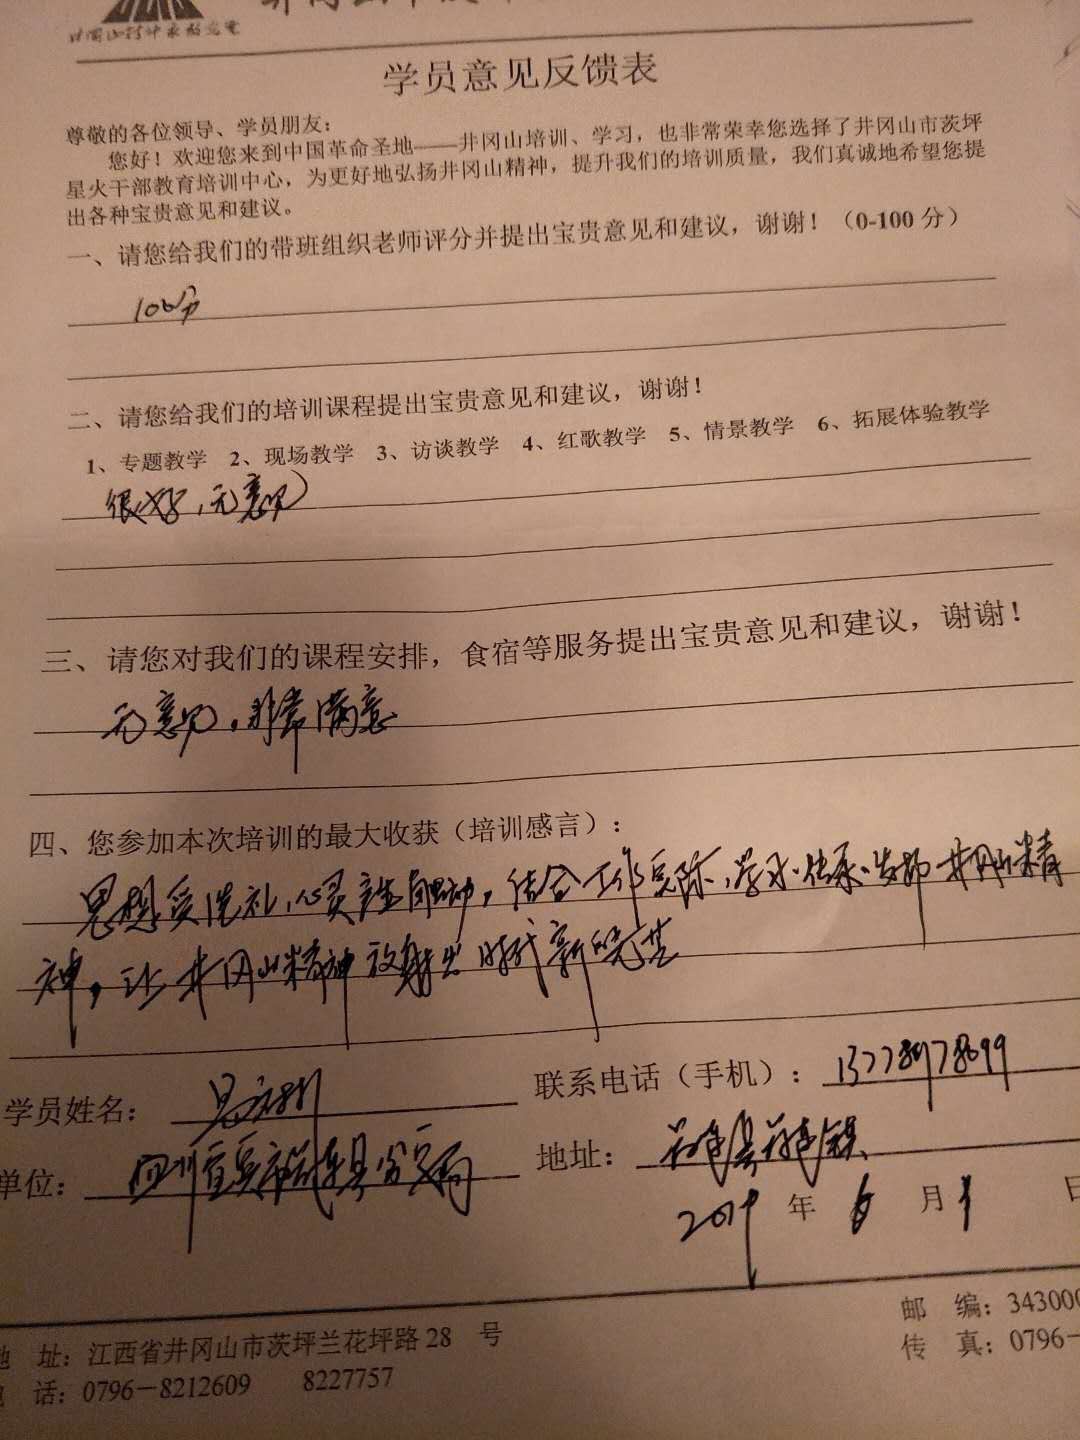 学员意见反馈表
尊敬的各位领导、学员朋友：
您好！欢迎您来到中国革命圣地——井冈山培训、学习，也非常荣幸您选择了井冈山市茨坪
星火干部教育培训中心，为更好地弘扬井冈山精神，提升我们的培训质量，我们真诚地希望您提
出各种宝贵意见和建议。
一、请您给我们的带班组织老师评分并提出宝贵意见和建议，谢谢！（0-100 分）
100分
二、请您给我们的培训课程提出宝贵意见和建议，谢谢！
1、专题教学 2、现场教学 3、访谈教学 4、红歌教学 5、情景教学 6、拓展体验教学
很好，无意见
三、请您对我们的课程安排，食宿等服务提出宝贵意见和建议，谢谢！
无意见，非常满意
四、您参加本次培训的最大收获（培训感言）：
思想受洗礼，心灵产生触动，结合工作实际，学习、传承、发扬井冈山精
神，让井冈山精神放射出时代新的光芒
学员姓名： 联系电话（手机）：13778978699
单位：四川宜宾市筠连县公安局 地址：筠连县筠连镇
2019 年 6 月 1 日
地 址：江西省井冈山市茨坪兰花坪路 28 号 邮 编：343000
电 话：0796－8212609 8227757 传 真：0796－